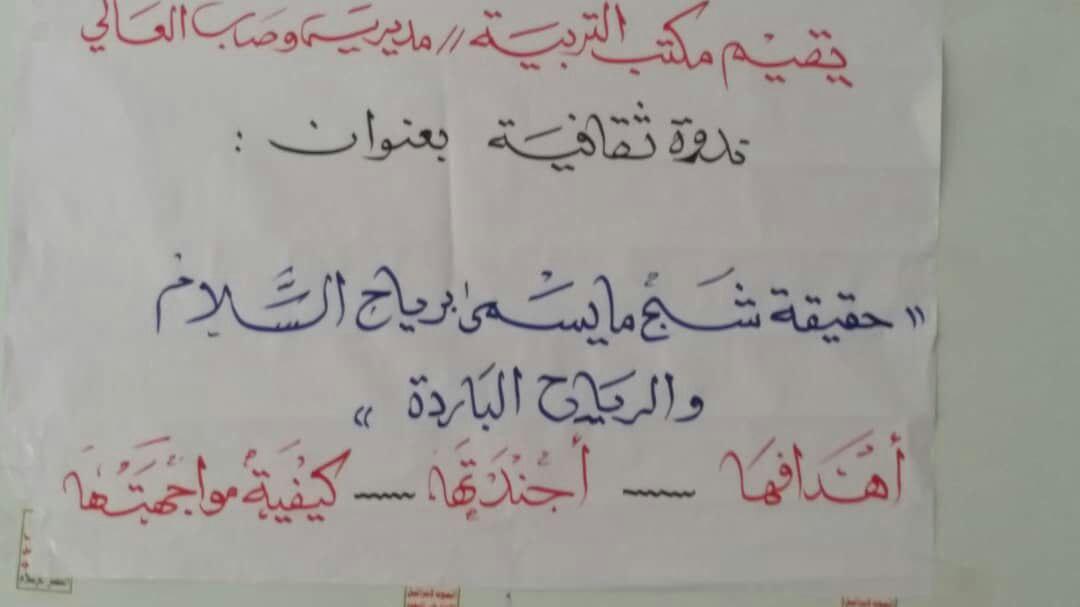 يقيم مكتب التربية // مديرية وصاب العالي
ندوة ثقافية بعنوان :
(( حقيقة شبح ما يسمى برياح السَّلام
والرياح الباردة ))
أهْدَافهَا ــ أجْنْدَتِهَا ــ كَيْفيَةُ مواجْهَتُهَا